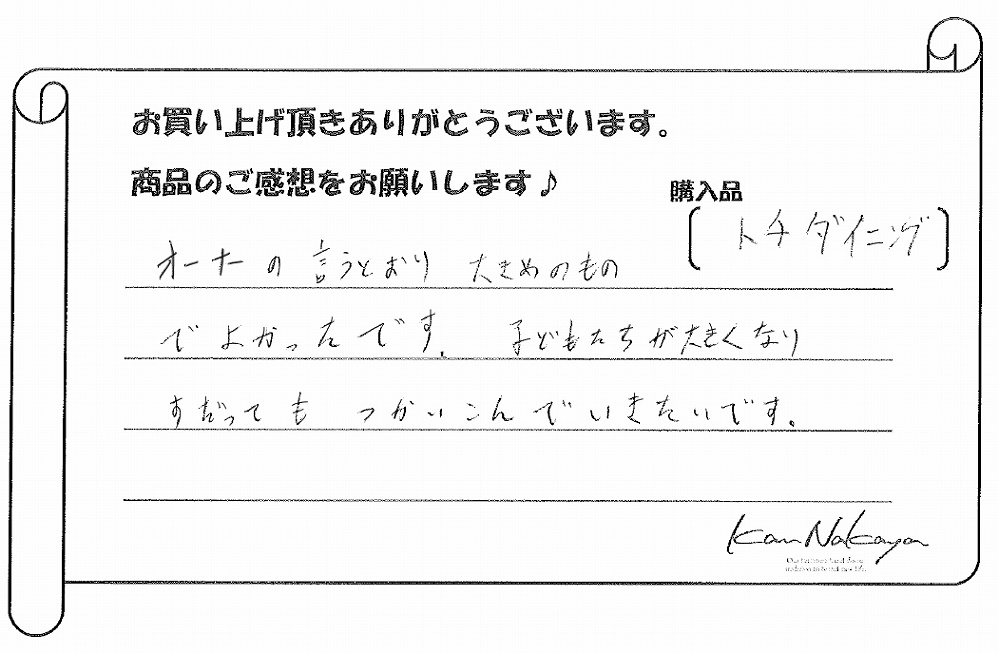 お買い上げ頂きありがとうございます。
商品のご感想をお願いします♪
購入品
〔トチダイニング〕
オーナーの言うとおり 大きめのもの
でよかったです。 子どもたちが大きくなり
すだっても つかいこんでいきたいです。
Kan Nakaya